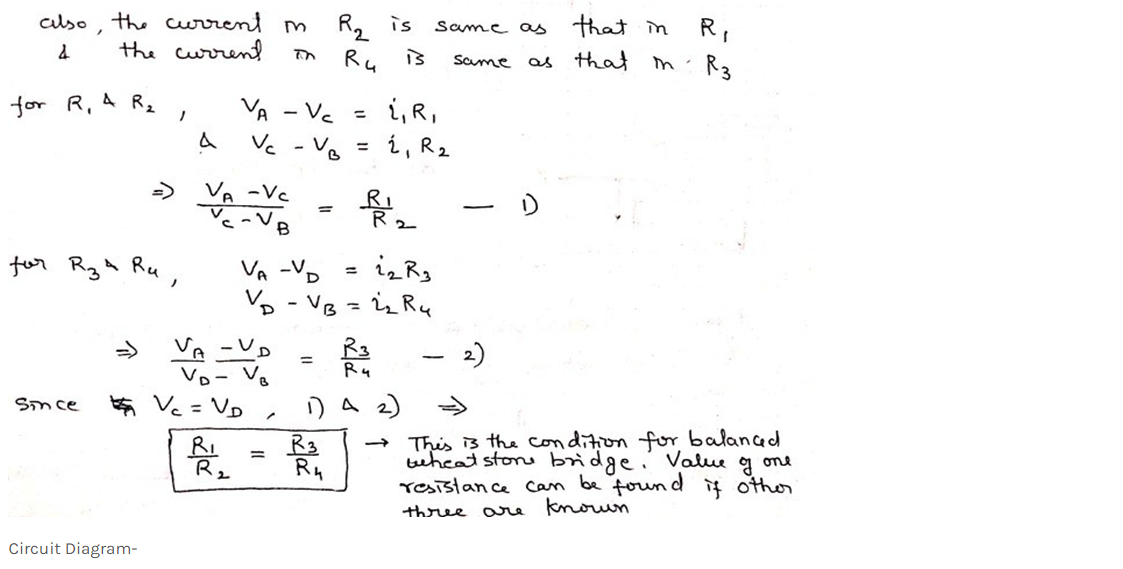 also, the current in R2 is same as that in R1
& the current in R4 is same as that in R3
for R1 & R2, VA - VC = i1R1
& VC - VB = i1R2
=> VA - VC / VC - VB = R1 / R2 — 1)
for R3 & R4, VA - VD = i2R3
VD - VB = i2R4
=> VA - VD / VD - VB = R3 / R4 — 2)
Since VC = VD, 1) & 2) =>
R1 / R2 = R3 / R4 → This is the condition for balanced
wheatstone bridge. Value of one
resistance can be found if other
three are known
Circuit Diagram-